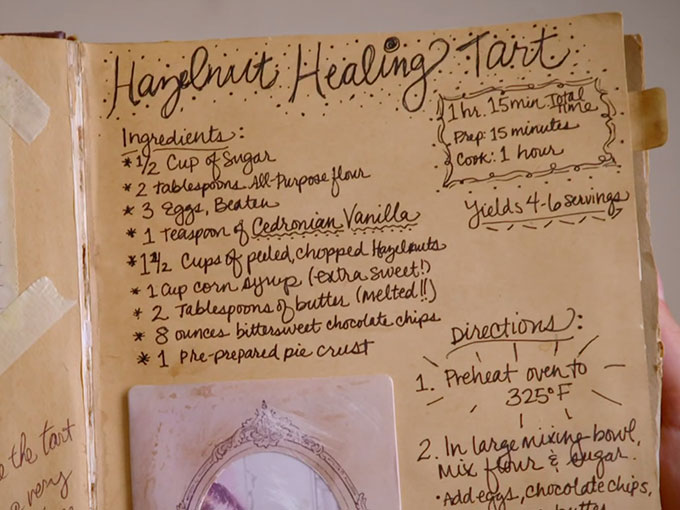 Hazelnut Healing Tart
Ingredients:
* 1/2 Cup of Sugar
* 2 tablespoons All-Purpose flour
* 3 Eggs, Beaten
* 1 Teaspoon of Cedronian Vanilla
* 1 1/2 Cups of peeled, chopped Hazelnuts
* 1 Cup corn syrup (extra sweet!)
* 2 Tablespoons of butter (Melted!!)
* 8 ounces bittersweet chocolate chips
* 1 Pre-prepared pie crust
1 hr. 15 min Total Time
Prep: 15 minutes
Cook: 1 hour
Yields 4-6 servings
Directions:
1. Preheat oven to
325°F
2. In large mixing bowl,
mix flour & sugar.
• Add eggs, chocolate chips,
butter
the tart
very